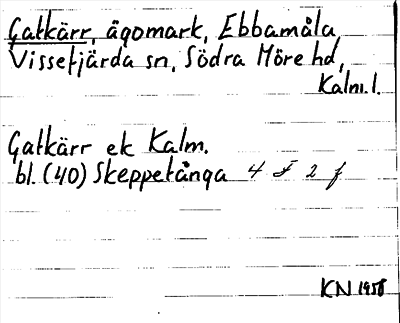 Gatkärr, ägomark, Ebbamåla,
Vissefjärda sn, Södra Möre hd,
Kalm. l.
Gatkärr ek Kalm.
bl. (40) Skeppetånga 4 F 2 f
KN 1958